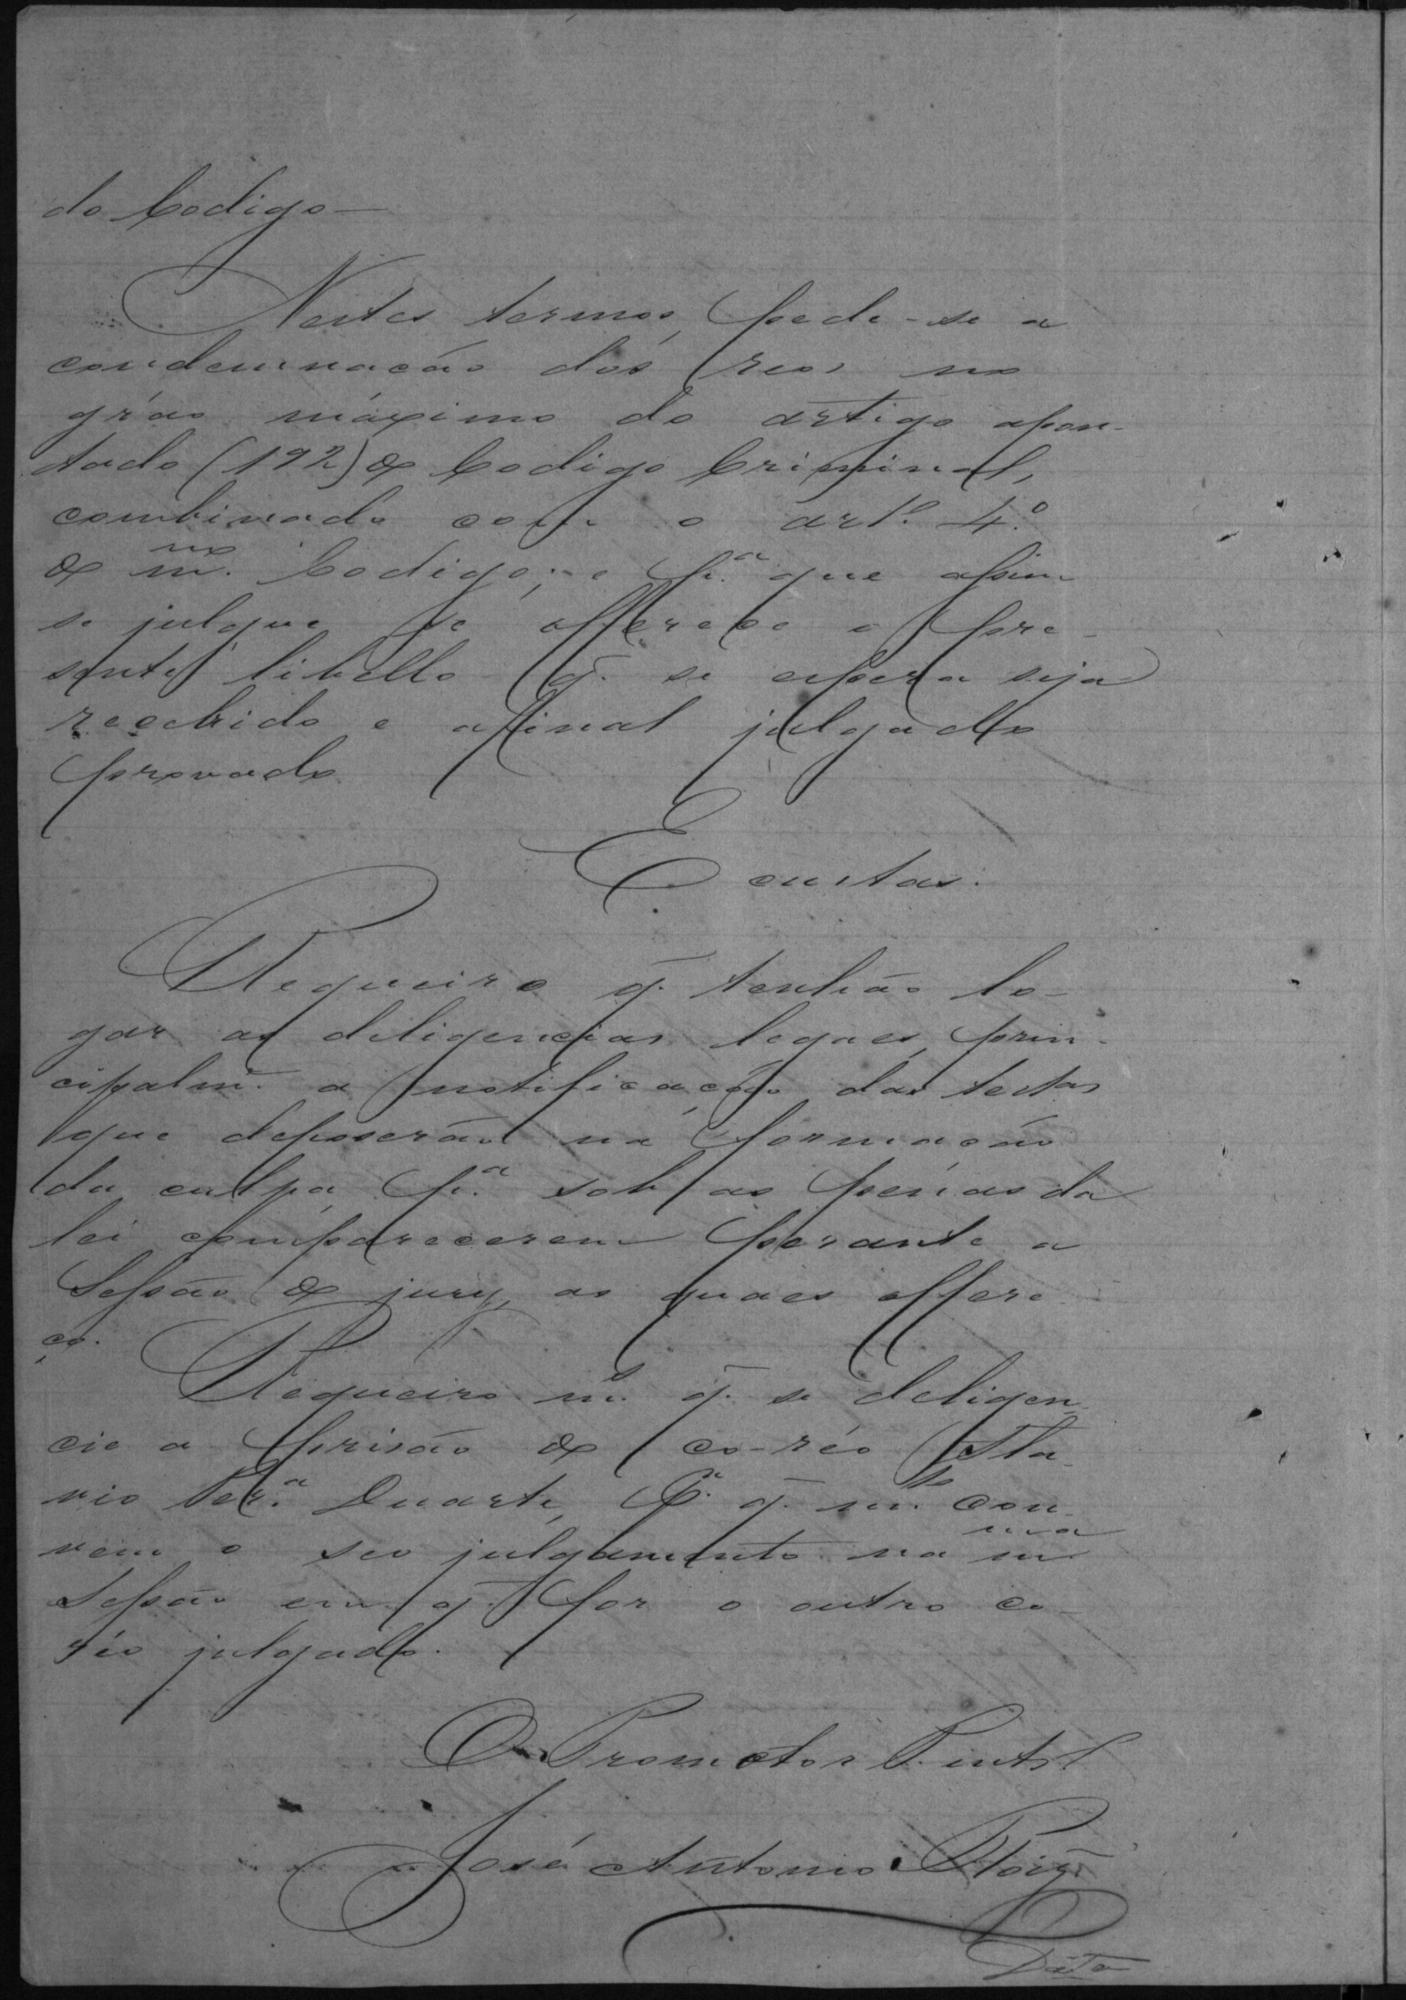 do Codigo —
Nestes termos, pede-se a
condemnação dos reos no
gráo máximo do artigo apon-
tado (192) do Codigo Criminal,
combinado com o artº. 4.º
do m.mo Codigo; e p.ª que assim
se julgue se offerece o pre-
sente libello q. se espera seja
recebido e afinal julgado
provado
E custas.
Requeiro q. tenhão lo-
gar as deligencias legaes, prin-
cipalm.e a notificação das testas
que deposerão na formação
da culpa p.ª sob as penas da
lei comparecerem perante a
Sessão do jury, as quaes offere-
ço.
Requeiro m. q. se deligen-
cie a prisão do co-réo Fla-
vio Per.ª Duarte, P.ª q. m.to con-
vem o seo julgamento na m.ma
Sessão em q. for o outro co-
réo julgado.
O Promotor
José Antonio
Data